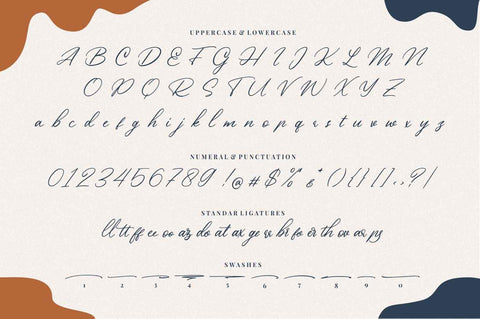 UPPERCASE & LOWERCASE
A B C D E F G H I J K L M N
O P Q R S T U V W X Y Z
a b c d e f g h i j k l m n o p q r s t u v w x y z
NUMERAL & PUNCTUATION
0123456789 !@#$%^&*(){}[].,?/
STANDAR LIGATURES
ll tt ff ee oo az do at ax ge is br fo er th ov as ps
SWASHES
1 2 3 4 5 6 7 8 9 0